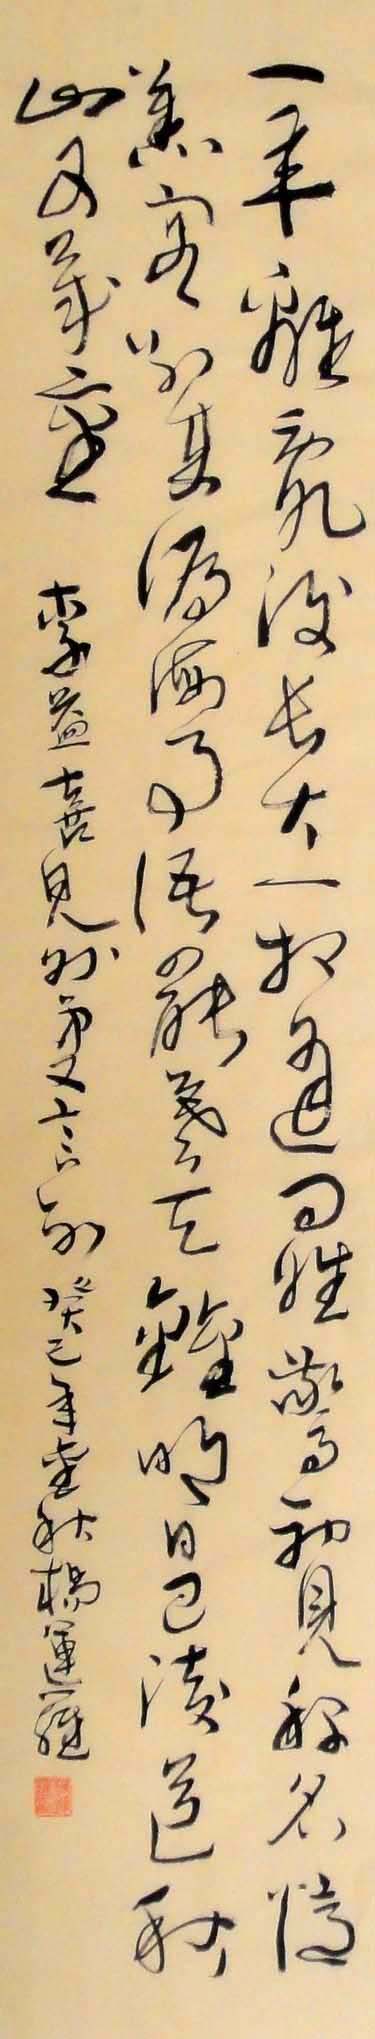 一年離亂後長大一相逢問姓驚初見稱名憶
舊容別來滄海事語罷暮天鐘明日巴陵道秋
山又幾重 李益喜見外弟又言別 癸巳年秋楊運